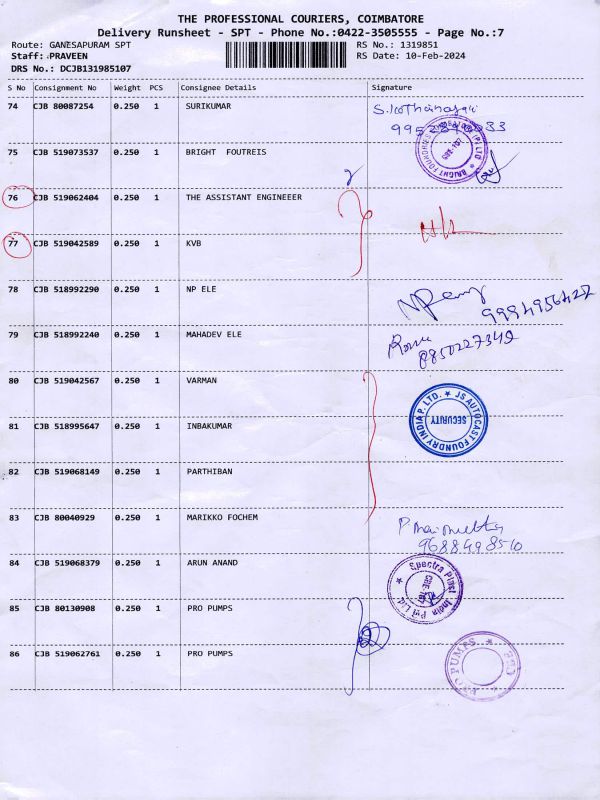 THE PROFESSIONAL COURIERS, COIMBATORE
Delivery Runsheet - SPT - Phone No.:0422-3505555 - Page No.:7
Route: GANESAPURAM SPT
RS No.: 1319851
Staff: PRAVEEN
RS Date: 10-Feb-2024
DRS No.: DCJB131985107
S No Consignment No Weight PCS Consignee Details Signature
74 CJB 80087254 0.250 1 SURIKUMAR
75 CJB 519073537 0.250 1 BRIGHT FOUTREIS
76 CJB 519062404 0.250 1 THE ASSISTANT ENGINEEER
77 CJB 519042589 0.250 1 KVB
78 CJB 518992290 0.250 1 NP ELE
9994956422
79 CJB 518992240 0.250 1 MAHADEV ELE
9850227349
80 CJB 519042567 0.250 1 VARMAN
JS AUTOCAST FOUNDRY INDIA P. LTD.
SECURITY
81 CJB 518995647 0.250 1 INBAKUMAR
82 CJB 519068149 0.250 1 PARTHIBAN
83 CJB 80040929 0.250 1 MARIKKO FOCHEM
9688498510
84 CJB 519068379 0.250 1 ARUN ANAND
Spectra Plast India Pvt Ltd.
85 CJB 80130908 0.250 1 PRO PUMPS
86 CJB 519062761 0.250 1 PRO PUMPS
PRO PUMPS